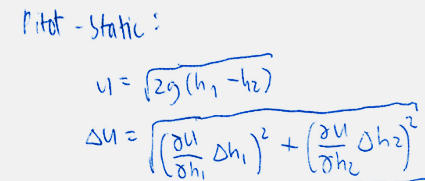 Pitot - Static :
u = √(2g (h₁ - h₂))
Δu = √((∂u/∂h₁ Δh₁)² + (∂u/∂h₂ Δh₂)²)